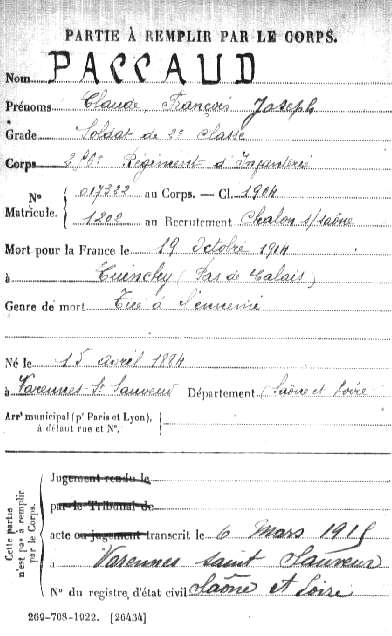 PARTIE À REMPLIR PAR LE CORPS.
Nom PACCAUD
Prénoms Claude François Joseph
Grade Soldat de 2e classe
Corps Régiment d'Infanterie
No Matricule. 017222 au Corps. — Cl. 1904
1202 au Recrutement Chalon s/saône
Mort pour la France le 19 Octobre 1914
à Cuinchy (Pas de Calais)
Genre de mort Tué à l'ennemi
Né le 15 avril 1884
à Varennes St Sauveur Département Saône et Loire
Arrt municipal (pr Paris et Lyon),
à défaut rue et No.
Cette partie n'est pas à remplir par le Corps.
Jugement rendu le
par le Tribunal de
acte ou jugement transcrit le 6 Mars 1915
à Varennes saint Sauveur
No du registre d'état civil Saône et Loire
269-708-1922. [26434]